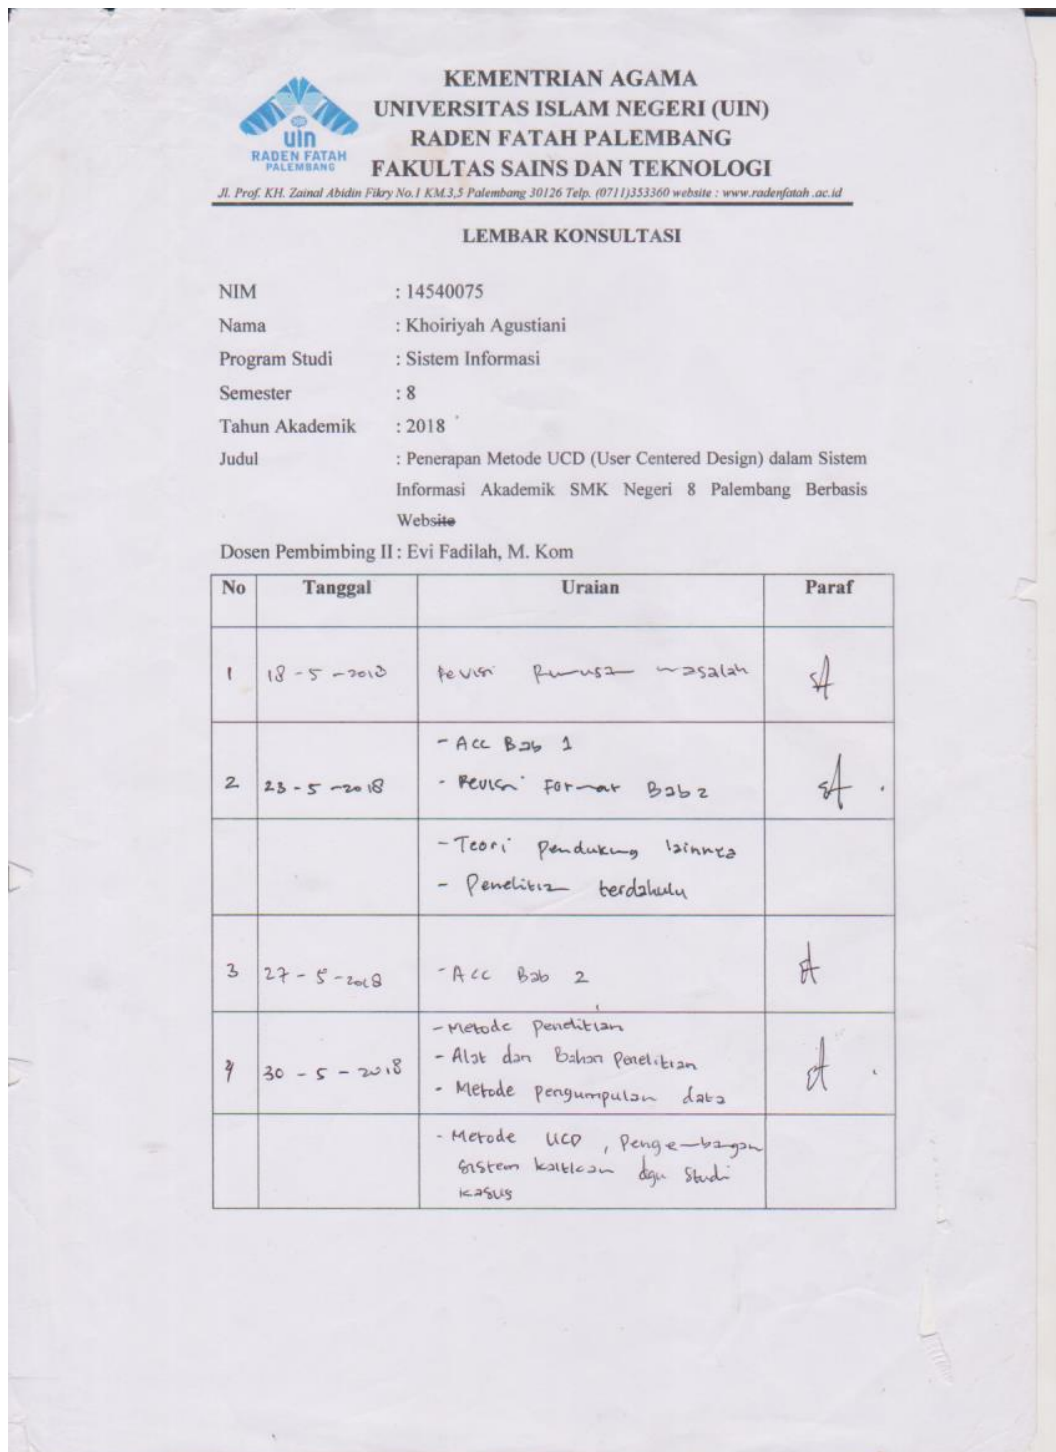 KEMENTRIAN AGAMA
UNIVERSITAS ISLAM NEGERI (UIN)
RADEN FATAH PALEMBANG
FAKULTAS SAINS DAN TEKNOLOGI
uin
RADEN FATAH
PALEMBANG
Jl. Prof. KH. Zainal Abidin Fikry No.1 KM.3,5 Palembang 30126 Telp. (0711)353360 website : www.radenfatah .ac.id
LEMBAR KONSULTASI
NIM : 14540075
Nama : Khoiriyah Agustiani
Program Studi : Sistem Informasi
Semester : 8
Tahun Akademik : 2018
Judul : Penerapan Metode UCD (User Centered Design) dalam Sistem
Informasi Akademik SMK Negeri 8 Palembang Berbasis
Website
Dosen Pembimbing II : Evi Fadilah, M. Kom
No Tanggal Uraian Paraf
1 18-5-2018 Revisi Rumusan masalah
- Acc Bab 1
2 23-5-2018 - Revisi Format Bab 2
- Teori pendukung lainnya
- Penelitian terdahulu
3 27-5-2018 - Acc Bab 2
- Metode penelitian
- Alat dan Bahan penelitian
4 30-5-2018
- Metode pengumpulan data
- Metode UCD, Pengembangan
sistem kaitkan dgn studi
kasus